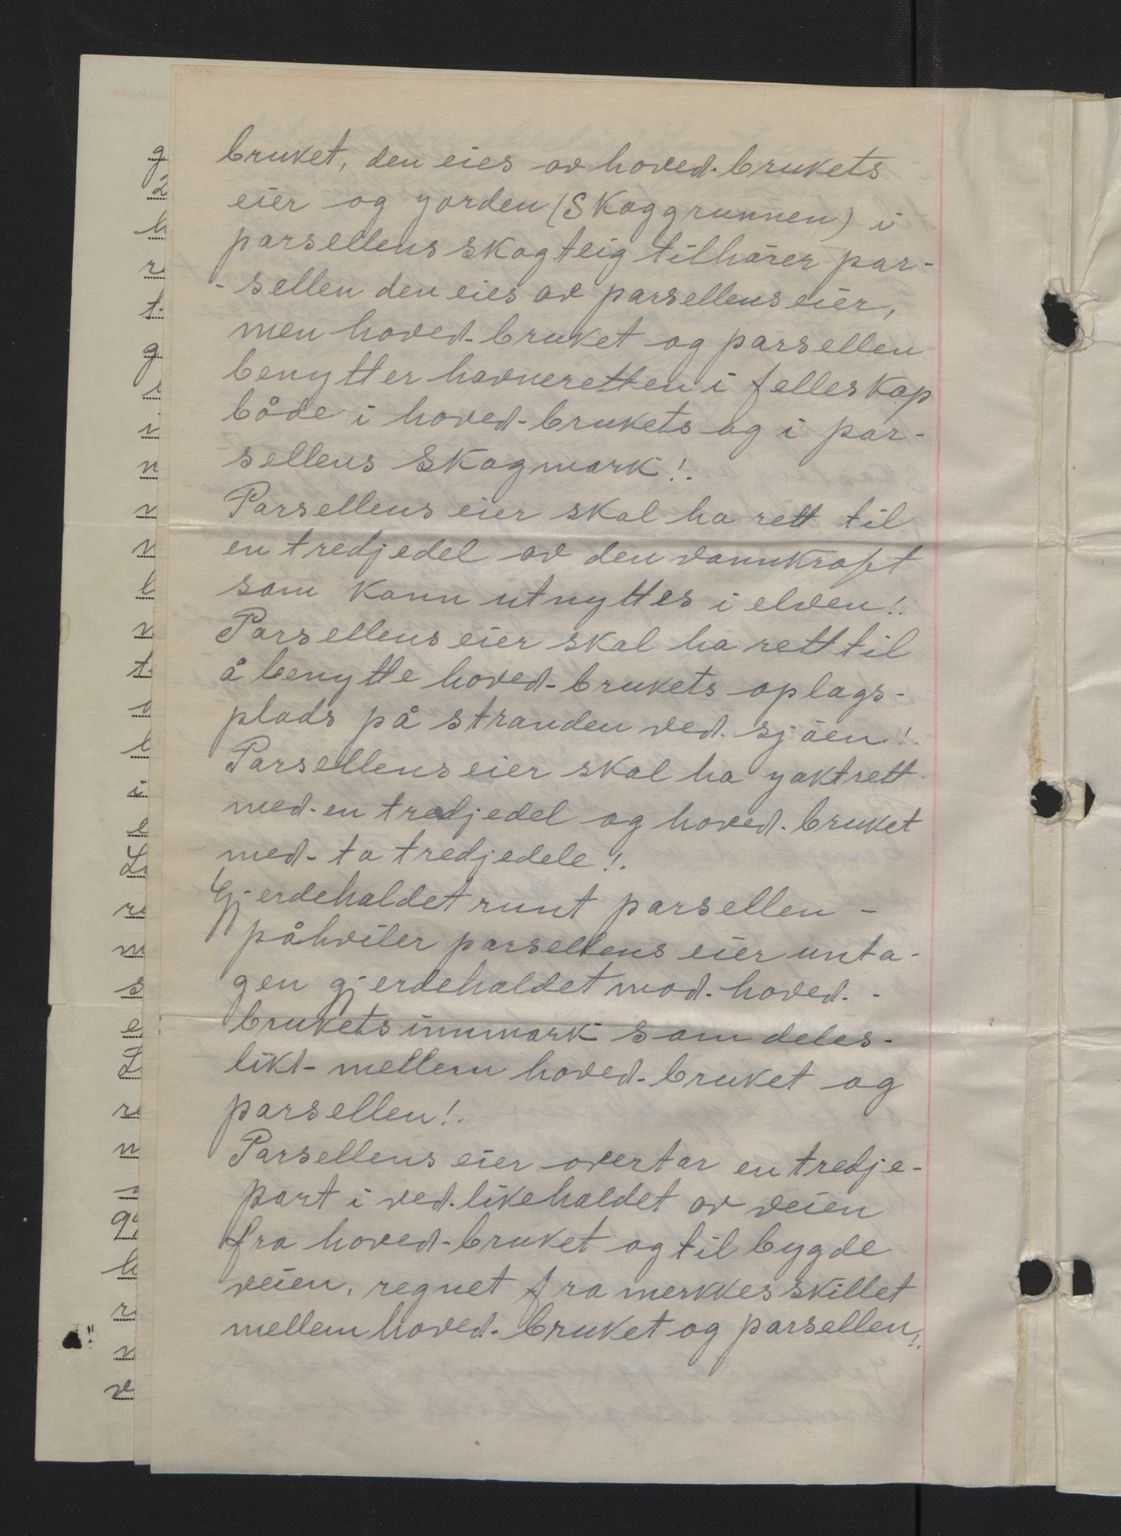 bruket, den eies av hoved-brukets
eier og yorden (Skoggrunnen) i
parsellens skogteig tilhører par-
-sellen den eies av parsellens eier,
men hoved-bruket og parsellen
benytter havneretten i felleskap
både i hoved-brukets og i par-
sellens skogmark!.
Parsellens eier skal ha rett til
en tredjedel av den vannkraft
som kann utnyttes i elven!.
Parsellens eier skal ha rett til
å benytte hoved-brukets oplags-
plads på stranden ved sjøen!.
Parsellens eier skal ha yaktrett
med en tredjedel og hoved-bruket
med to tredjedele!.
Gjerdehaldet runt parsellen -
påhviler parsellens eier unta-
gen gjerdehaldet mod hoved-
brukets innmark som deles-
likt- mellem hoved-bruket og
parsellen!.
Parsellens eier overtar en tredje-
part i ved.likehaldet av veien
fra hoved-bruket og til bygde
veien, regnet fra merkkesskillet
mellem hoved-bruket og parsellen!.